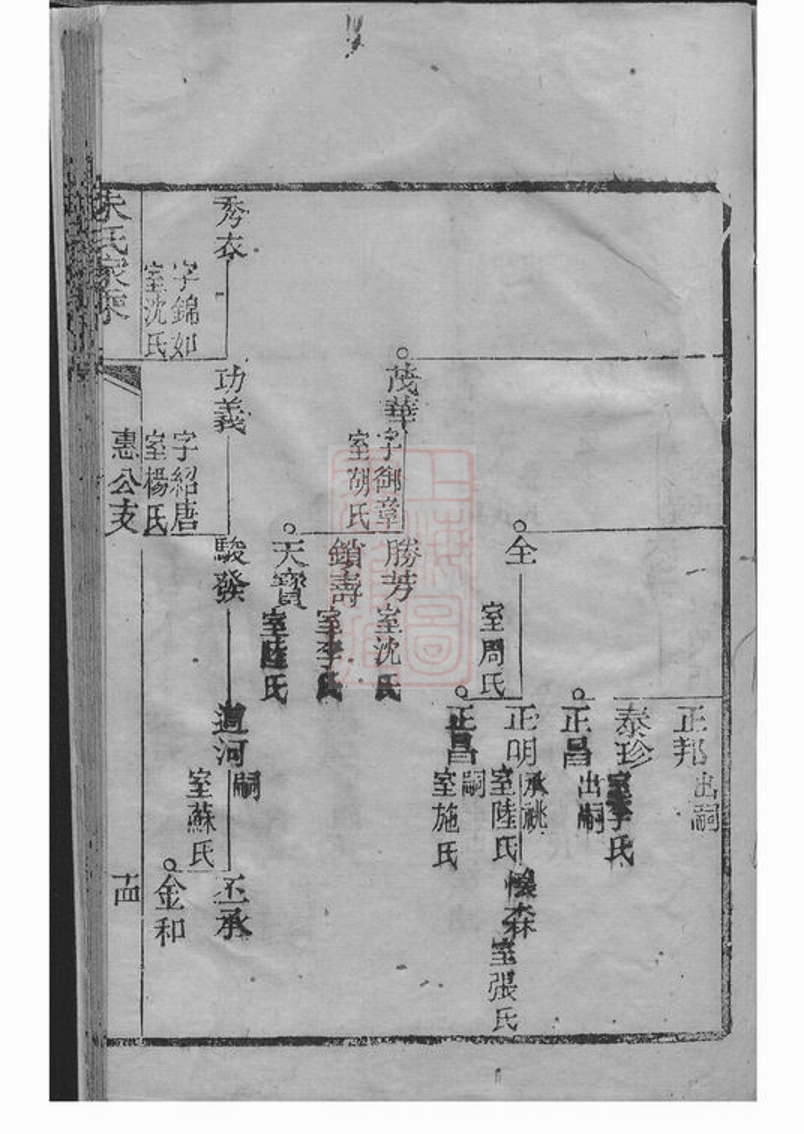 正邦
出嗣
泰珍
室李氏
正昌
出嗣
全
室周氏
正明
承祧
室陸氏
森
室張氏
正昌
嗣
室施氏
茂華
字御章
室胡氏
勝芳
室沈氏
鎖壽
室李氏
天寶
室陸氏
秀衣
字錦如
室沈氏
功義
字紹唐
室楊氏
駿發
河
嗣
室蘇氏
丕承
金和
朱氏家乘
惠公支
十四